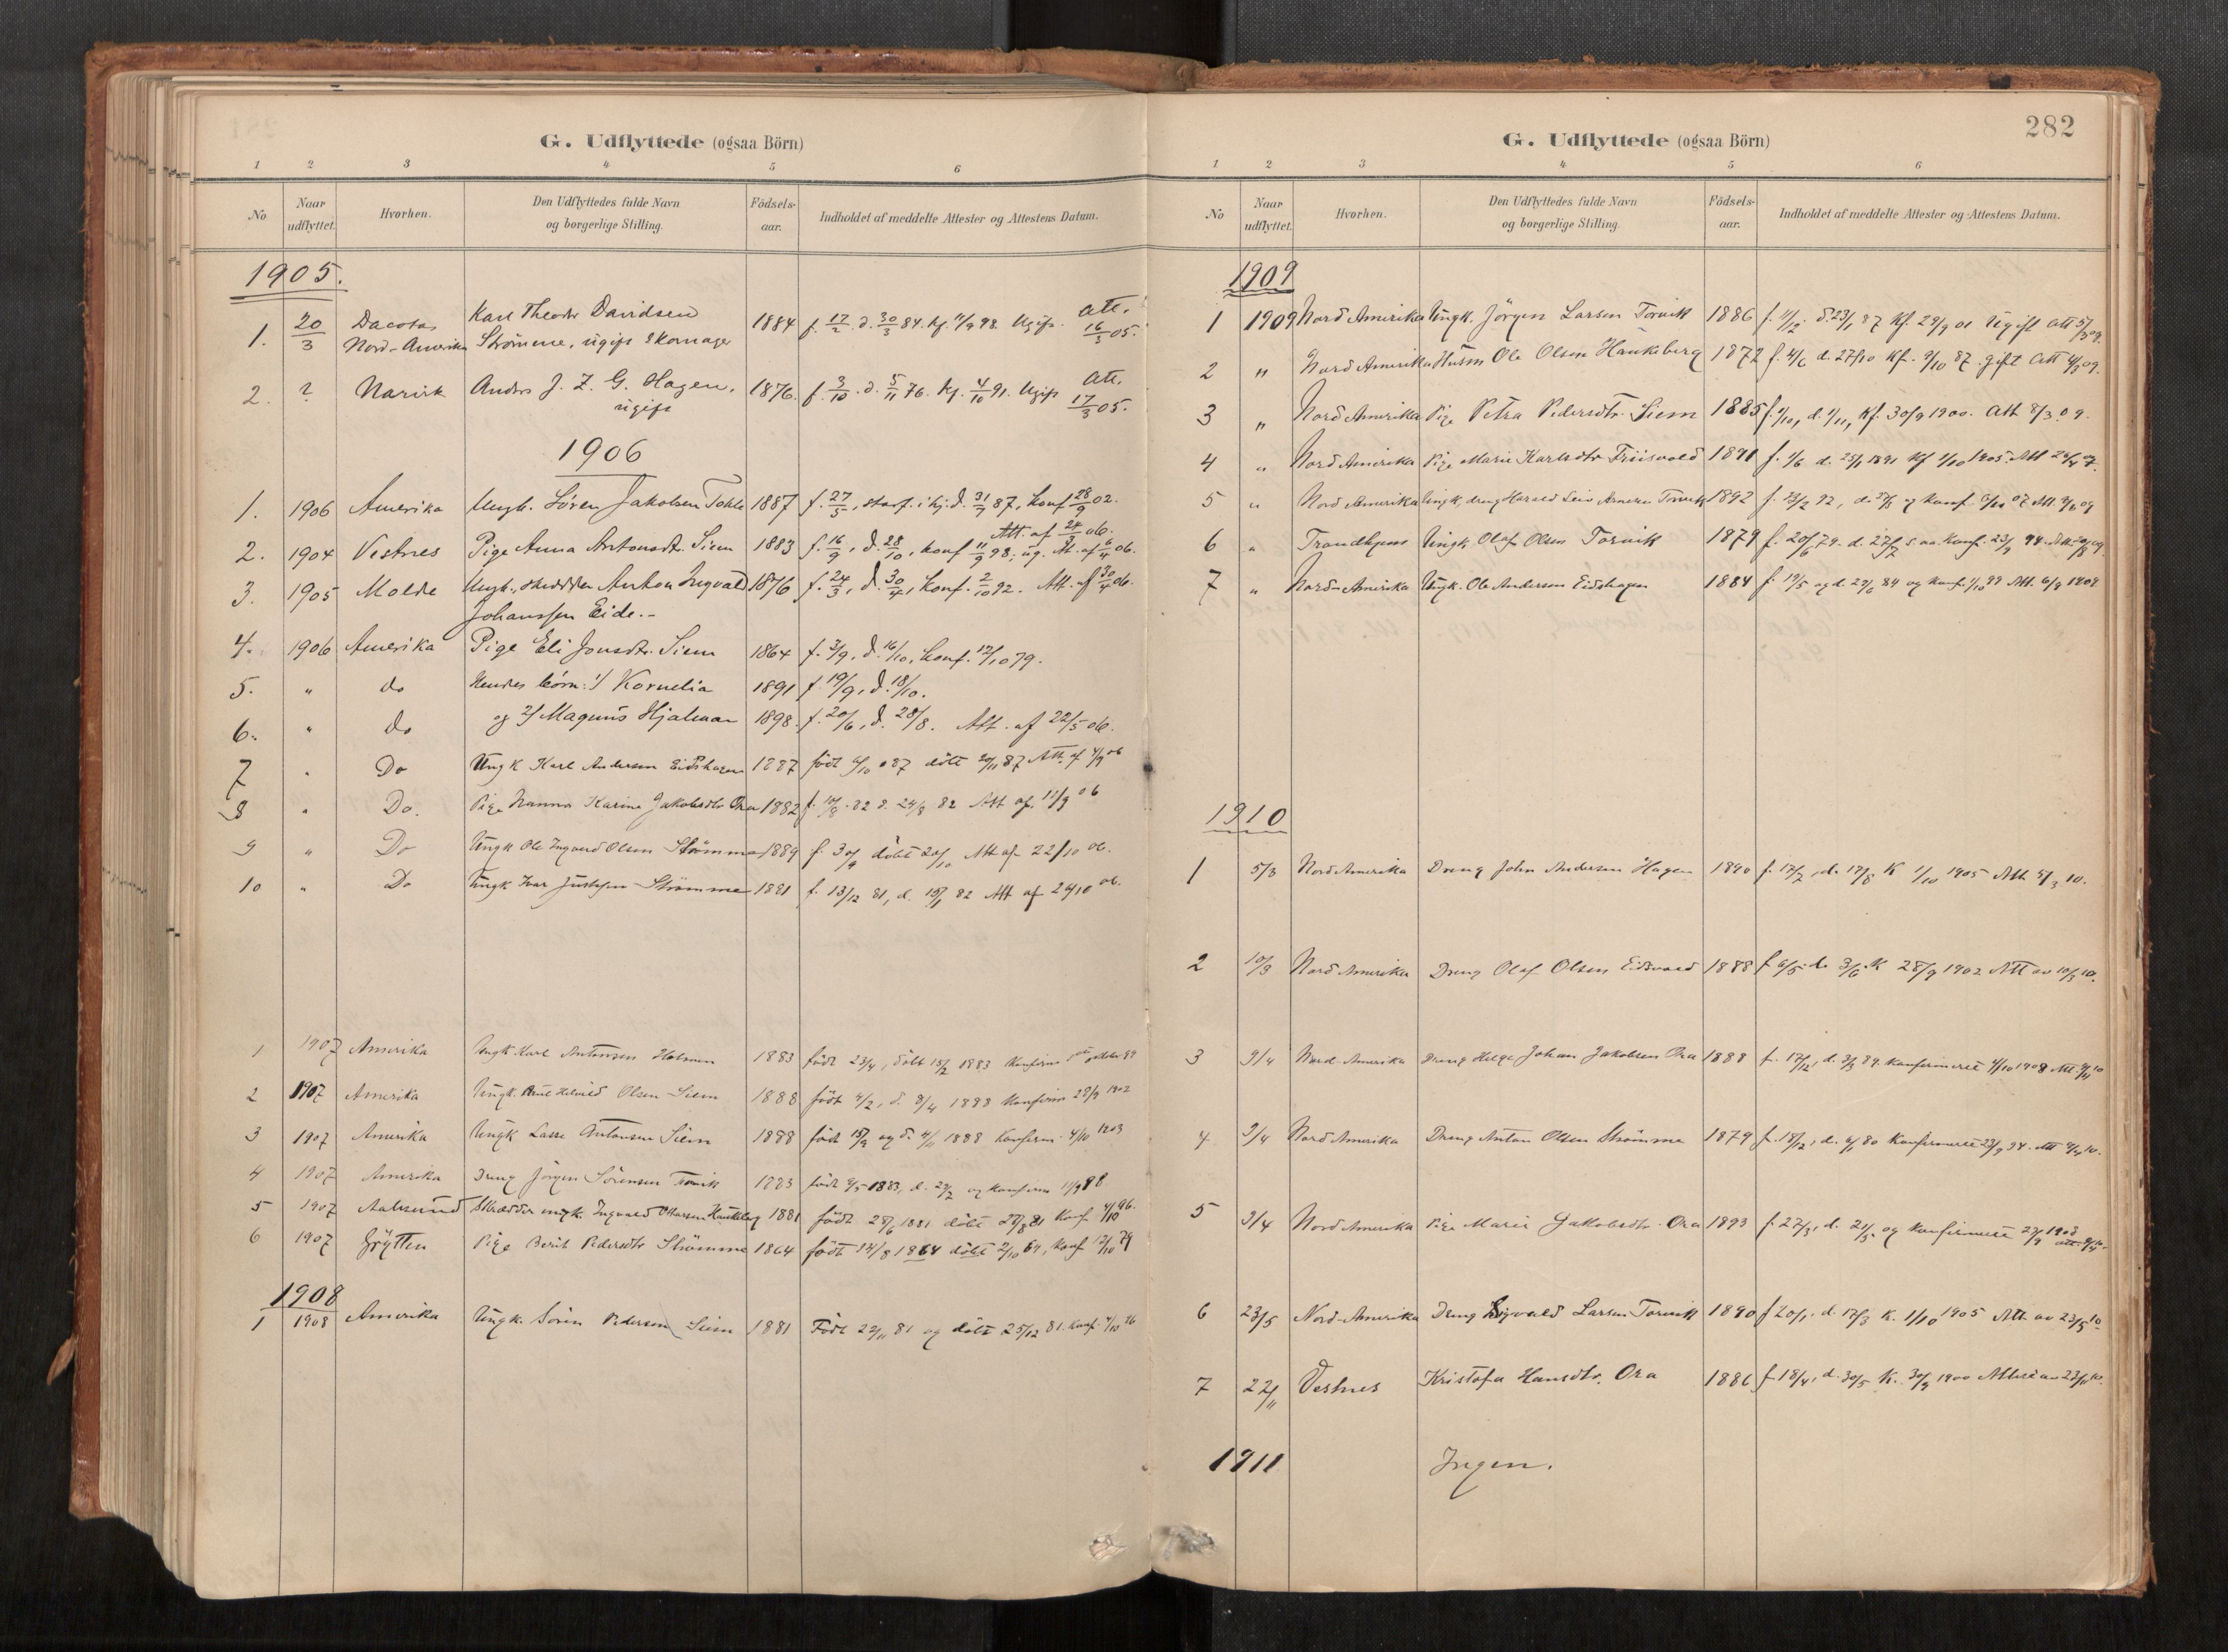 G. Udflyttede (ogsaa Börn)
1 2 3 4 5 6
No Naar udflyttet. Hvorhen. Den Udflyttedes fulde Navn og borgerlige Stilling. Födsels-aar. Indholdet af meddelte Attester og Attestens Datum.
1905.
1. 20/3 Dacotas Karl Theodor Davidsen 1884 f. 17/2 d. 30/3 84. kf. 11/9 98. Ugift. Att.
Nord-Amerika Strömme, ugift skomager 16/3 05.
2. ? Narvik Anders J. Z. G. Hagen. 1876. f. 3/10. d. 5/11 76. kf. 4/10 91. Ugift Att.
ugift 17/3 05.
1906
1. 1906 Amerika Ungk. Sören Jakobsen Tokle 1887 f. 27/5, d. 31/7 87, konf 28/9 02.
Att. af 24/3 06.
2. 1904 Vestnes Pige Anna Antonsdtr. Siem 1883 f. 16/9, d. 28/10, konf 11/9 98; ug. At. af 6/4 06.
3. 1905 Molde Ungk., skrædder Anton Ingvald 1876 f. 24/3, d. 30/4, konf. 2/10 92. Att. af 30/4 06.
Johanssen Eide.-
4. 1906 Amerika Pige Eli Jonsdtr. Siem 1864 f. 3/9, d. 16/10, konf. 12/10 79.
5. " do Hendes börn: 1/ Kornelia 1891 f. 19/9, d. 18/10.
6. " do og 2/ Magnus Hjalmar 1898. f. 20/6, d. 28/8. Att. af 22/5 06.
7 " Do Ungk Karl Andersen Eidshagen 1887 födt 6/10 87 döbt 20/11 87 Att. af 4/9 06
8 " Do. Pige Nanna Karine Jakobsdtr Ora 1882 f. 10/8 82 d. 24/8 82 Att af. 11/9 06
9 " Do Ungk Ole Ingvard Olsen Strömme 1889 f. 30/9 döbt 20/10 Att af 22/10 06.
10 " Do Ungk Ivar Justesen Strömme 1881 f. 13/12 81, d. 15/1 82 Att af 24/10 06.
1 1907 Amerika Ungk Karl Antonsen Holmen 1883 födt 23/4, döbt 1883 Konfirm
2 1907 Amerika Ungk. Olsen Siem 1888 födt 4/2, d. 8/4 1888 Konfirm 28/9 1902
3 1907 Amerika Ungk Lasse Antonsen Siem 1888 födt 15/9 og d. 4/11 1888 Konfirm. 4/10 1903
4 1907 Amerika Dreng Jörgen Sörensen Torvik 1883 födt 9/5 1883, d. og konfirm 11/9 88
5 1907 Aalesund Skrædder ungk. Ingvald Ottarsen Haukeberg 1881 födt 28/6 1881 döbt 28/8 81 Konf. 4/10 96.
6 1907 Grytten Pige Berit Pedersdtr Strömme 1864 födt 14/8 1864 döbt 2/10 64, konf 12/10 79
1908
1 1908 Amerika Ungk. Sören Pedersen Siem 1881 Födt 22/11 81 og döbt 25/12 81. Konf. 4/10 96
282
G. Udflyttede (ogsaa Börn)
1 2 3 4 5 6
No Naar udflyttet. Hvorhen. Den Udflyttedes fulde Navn og borgerlige Stilling. Födsels-aar. Indholdet af meddelte Attester og Attestens Datum.
1909
1 1909 Nord Amerika Ungk. Jörgen Larsen Torvik 1886 f. 11/12 d. 23/1 87 Kf. 29/9 01 Ugift Att 5/3 09.
2 " Nord Amerika Husm Ole Olsen Haukeberg 1872 f. 4/6 d. 27/10 Kf. 9/10 87. gift Att 4/3 09.
3 " Nord Amerika Pige Petra Pedersdtr. Siem 1885 f. 1/10, d. 1/11, Kf. 30/9 1900. Att 8/3 09.
4 " Nord Amerika Pige Marie Karlsdtr Friisvold 1891 f. 1/6 d. 25/1 1891 Kf 1/10 1905. Att
5 " Nord Amerika Ungk. dreng Harald Leiv Arnesen Torvik 1892 f. 23/2 92, og konf.
6 " Trondhjem Ungk Olaf Olsen Torvik 1879 f. 20/6 79. d. 27/7 s. aa. Konf. 23/9 94.
7 " Nord-Amerika Ungk. Ole Andersen Eidshagen 1884 f. 19/5 og d. 29/6 84 og konf. 1/10 99 Att. 6/8 1909
1910
1 5/3 Nord Amerika Dreng John Andersen Hagen 1890 f. 17/7, d. 17/8 K 1/10 1905 Att. 5/3 10.
2 10/3 Nord Amerika Dreng Olaf Olsen Eidsvaad 1888 f. 6/5 d. 3/6 K 28/9 1902 Att av 10/3 10.
3 9/4 Nord-Amerika Dreng Helge Johan Jakobsen Ora 1888 f. 17/12, d. 3/3 89. Konfirmeret 4/10 1908 Att. 9/4 10
4 9/4 Nord Amerika Dreng Anton Olsen Strömme 1879 f. 18/12, d. 6/1 80 Konfirmeret 23/9 94. Att 9/4 10.
5 9/4 Nord Amerika Pige Marie Jakobsdtr. Ora 1893 f. 27/3, d. 21/5 og konfirmeret 27/9 1908 att. 9/4 10.
6 23/5 Nord-Amerika Dreng Sigvald Larsen Torvik 1890 f 20/1, d. 17/3 K. 1/10 1905 Att. av 23/5 10
7 22/11 Vestnes Kristofa Hansdtr. Ora 1886 f. 18/4, d. 30/5 K. 30/9 1900 Attest av 22/11 10.
1911 Ingen.